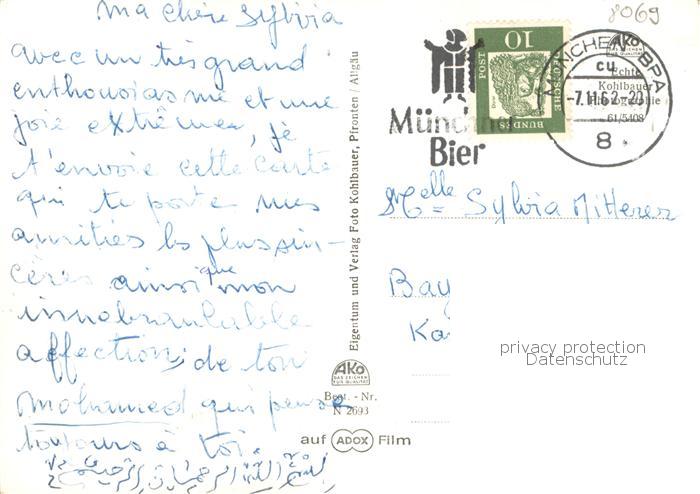 8069
ma chère Sylvia
avec un très grand
enthousiasme et une
joie extrême, je
t'envoie cette carte
qui te porte mes
amitiés les plus sin-
cères ainsi que mon
innebranlable
affection, de ton
mohamed qui pense
toujours à toi.
بسم الله الرحمن الرحيم
Eigentum und Verlag Foto Kohlbauer, Pfronten / Allgäu
AKo
DAS ZEICHEN
FÜR QUALITÄT
Best. - Nr.
N 2693
auf ADOX Film
Münchner
Bier
10
DEUTSCHE
BUNDES
POST
MÜNCHEN BPA
cu
-7.11.62-20
8
AKo
Echte
Kohlbauer
Photographie
61/5408
Melle Sylvia Mitterer
Bay
Ka
privacy protection
Datenschutz